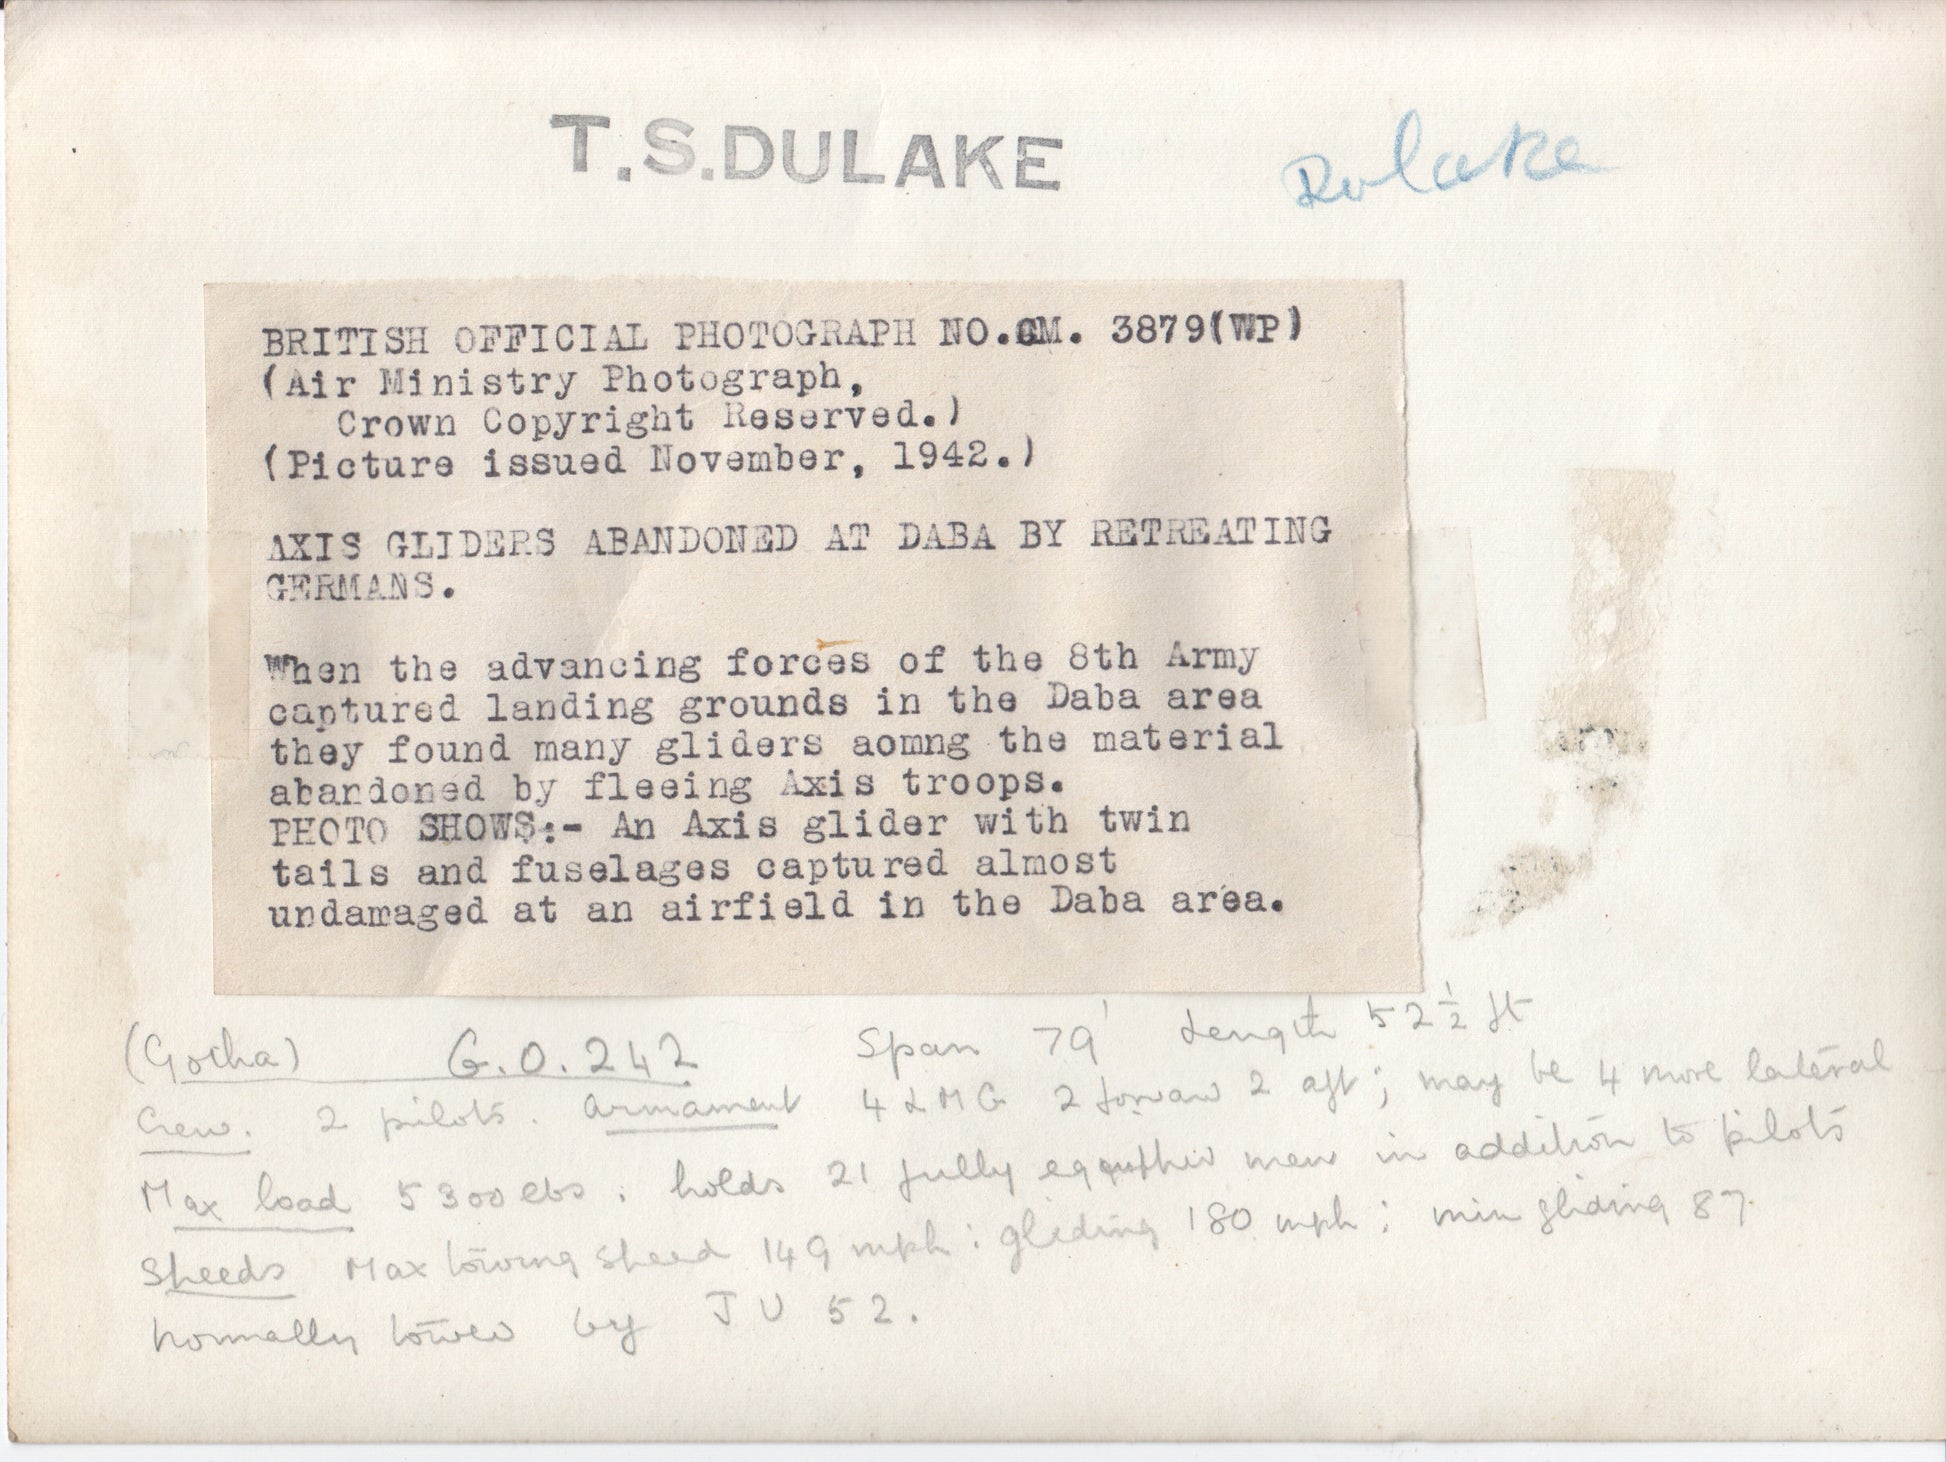 T.S.DULAKE
Dulake
BRITISH OFFICIAL PHOTOGRAPH NO.CM. 3879(WP)
(Air Ministry Photograph,
Crown Copyright Reserved.)
(Picture issued November, 1942.)
AXIS GLIDERS ABANDONED AT DABA BY RETREATING
GERMANS.
When the advancing forces of the 8th Army
captured landing grounds in the Daba area
they found many gliders aomng the material
abandoned by fleeing Axis troops.
PHOTO SHOWS:- An Axis glider with twin
tails and fuselages captured almost
undamaged at an airfield in the Daba area.
(Gotha) G.O.242 Span 79' Length 52 1/2 ft
Crew. 2 pilots. Armament 4 LMG 2 forward 2 aft; may be 4 more lateral
Max load 5300 lbs: holds 21 fully equipped men in addition to pilots
Speeds Max towing speed 149 mph: gliding 180 mph; min gliding 87.
Normally towed by JU 52.